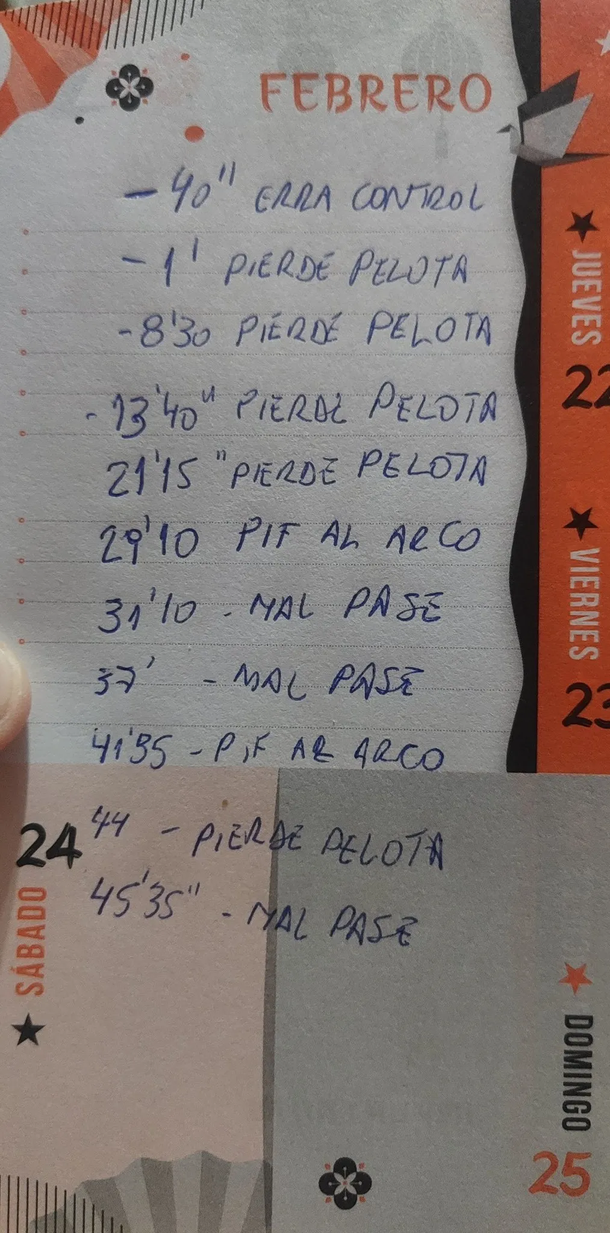 FEBRERO
- 40" ERRA CONTROL
- 1' PIERDE PELOTA
- 8'30 PIERDE PELOTA
- 13'40" PIERDE PELOTA
21'15" PIERDE PELOTA
29'10 PIF AL ARCO
31'10 - MAL PASE
37' - MAL PASE
41'35 - PIF AL ARCO
44 - PIERDE PELOTA
45'35" - MAL PASE
JUEVES
22
VIERNES
23
24
SÁBADO
DOMINGO
25